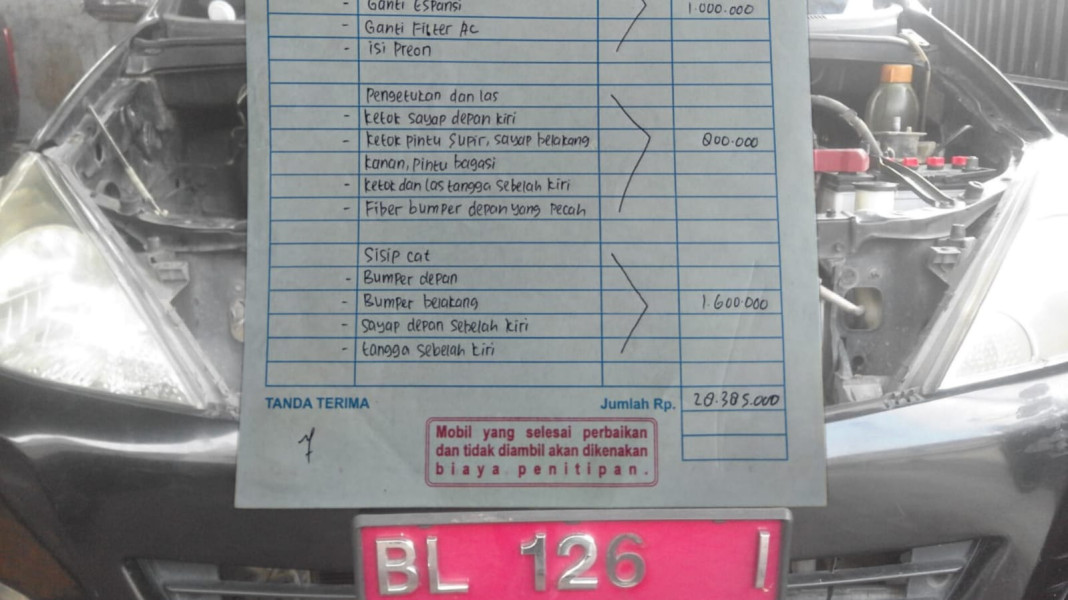 - Ganti Espansi 1.000.000
- Ganti Filter AC
- isi Preon
Pengetukan dan las
- Ketok sayap depan kiri
- Ketok pintu supir, sayap belakang 800.000
kanan, pintu bagasi
- Ketok dan las tangga sebelah kiri
- Fiber bumper depan yang pecah
Sisip cat
- Bumper depan
- Bumper belakang 1.600.000
- sayap depan sebelah kiri
- tangga sebelah kiri
TANDA TERIMA Jumlah Rp. 28.385.000
Mobil yang selesai perbaikan
dan tidak diambil akan dikenakan
biaya penitipan.
BL 126 I